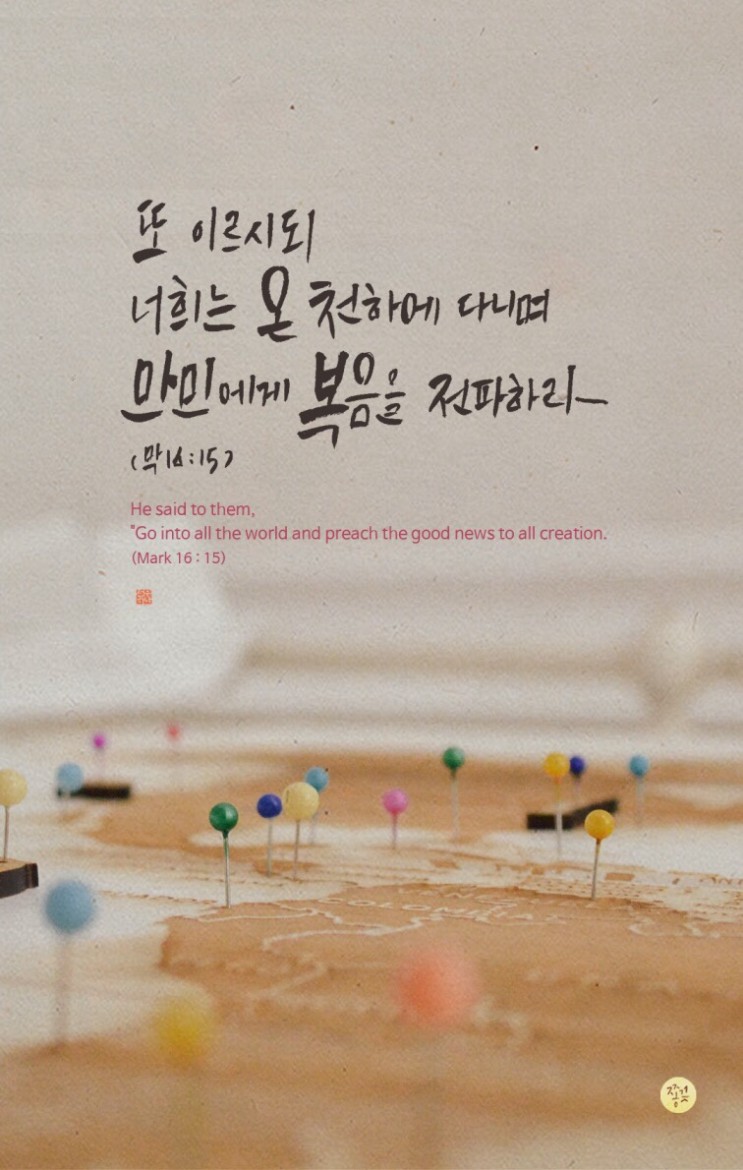 또 이르시되
너희는 온 천하에 다니며
만민에게 복음을 전파하라
(막16:15)
He said to them,
"Go into all the world and preach the good news to all creation.
(Mark 16 : 15)